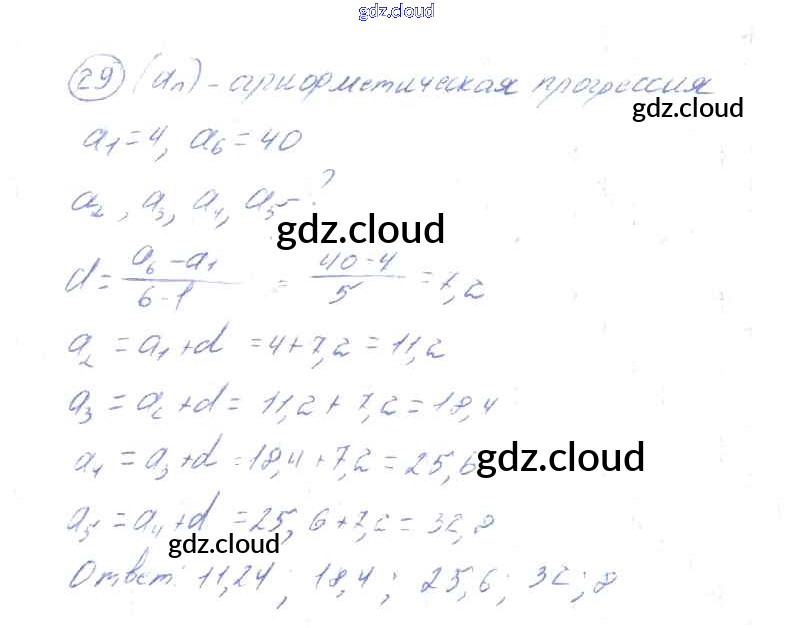 gdz.cloud
29 (an) - арифметическая прогрессия
gdz.cloud
a1=4, a6=40
a2, a3, a4, a5-?
gdz.cloud
d= a6-a1 / 6-1 = 40-4 / 5 = 7,2
a2 = a1+d = 4+7,2 = 11,2
a3 = a2+d = 11,2+7,2=18,4
a4 = a3+d = 18,4+7,2 = 25,6
gdz.cloud
a5 = a4+d = 25,6+7,2 = 32,8
gdz.cloud
Ответ: 11,24; 18,4; 25,6; 32;8